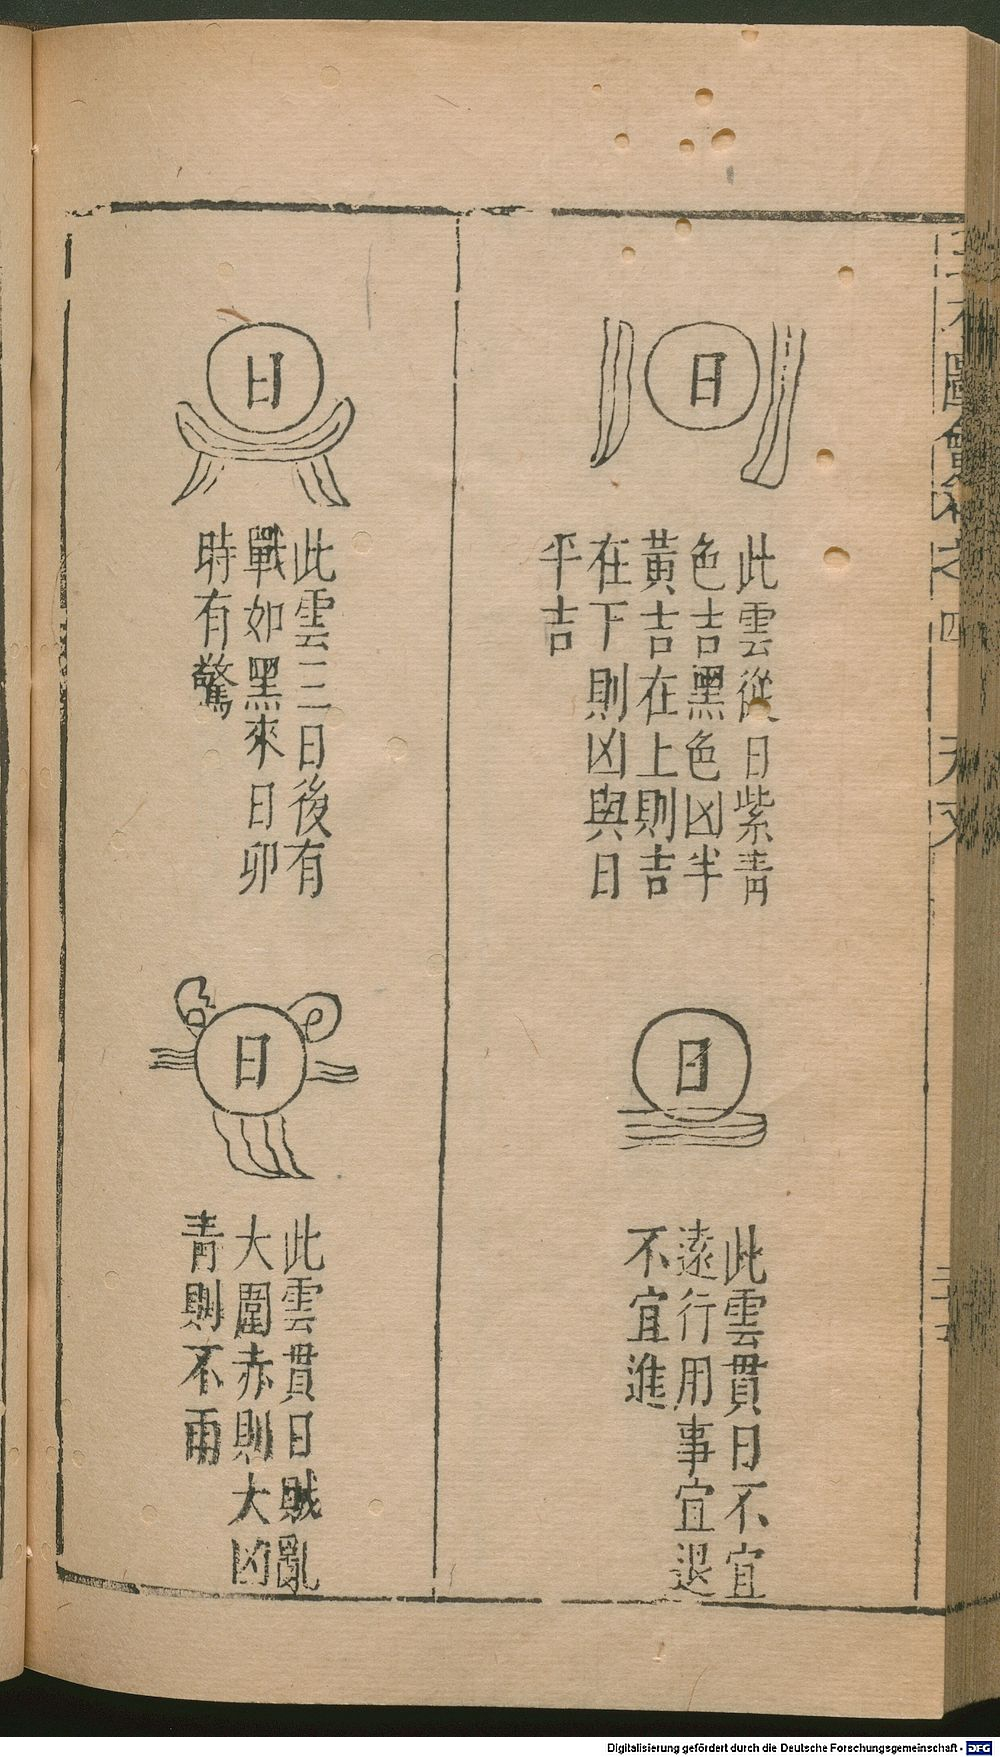 圖會
之四
天文
日
此雲從日紫青
色吉黑色凶半
黃吉在上則吉
在下則凶與日
平吉
日
此雲貫日不宜
遠行用事宜退
不宜進
日
此雲二三日後有
戰如黑來日卯
時有驚
日
此雲貫日賊亂
大圍赤則大凶
青則不雨
Digitalisierung gefördert durch die Deutsche Forschungsgemeinschaft - DFG